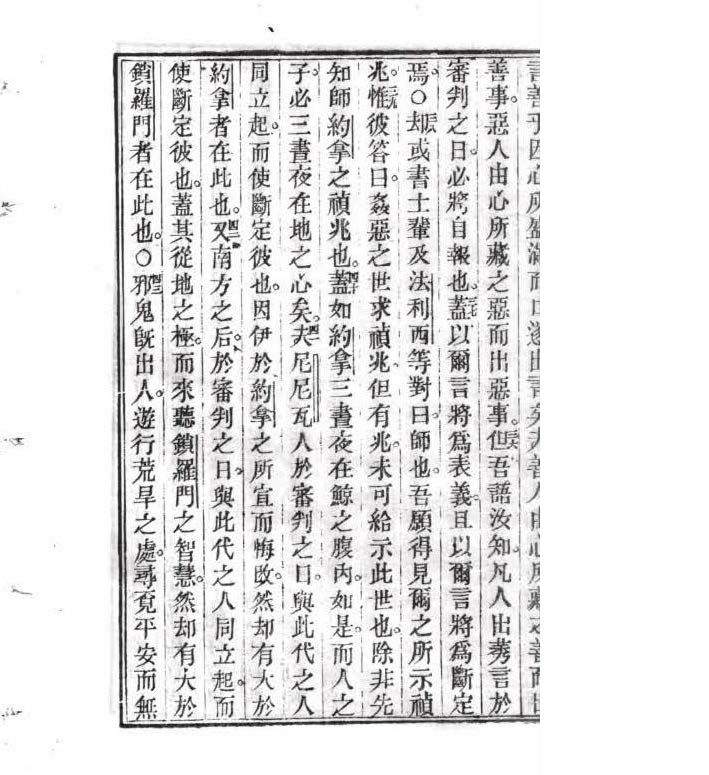 言善乎因心所盛滿而口遂出言矣夫善人由心所藏之善而出
善事。惡人由心所藏之惡而出惡事。三六但吾語汝知。凡人出莠言於
審判之日。必將自報也。三七蓋以爾言將爲表義。且以爾言將爲斷定
焉。○三八却或書士輩及法利西等對曰。師也。吾願得見爾之所示禎
兆。三九惟彼答曰。姦惡之世求禎兆。但有兆。未可給示此世也。除非先
知師約拿之禎兆也。四十蓋如約拿三晝夜在鯨之腹內。如是。而人之
子。必三晝夜在地之心矣。四一夫尼尼瓦人於審判之日。與此代之人
同立起。而使斷定彼也。因伊於約拿之所宣而悔改。然却有大於
約拿者在此也。四二又南方之后。於審判之日。與此代之人同立起。而
使斷定彼也。蓋其從地之極。而來聽鎖羅門之智慧。然却有大於
鎖羅門者在此也。○四三邪鬼旣出人。遊行荒旱之處。尋覔平安而無